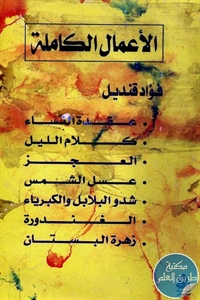 الأعمال الكاملة
فؤاد قنديل
• عقدة النساء
• كلام الليل
• العجز
• عسل الشمس
• شدو البلابل والكبرياء
• الغندورة
• زهرة البستان
مكتبة
طريق العلم